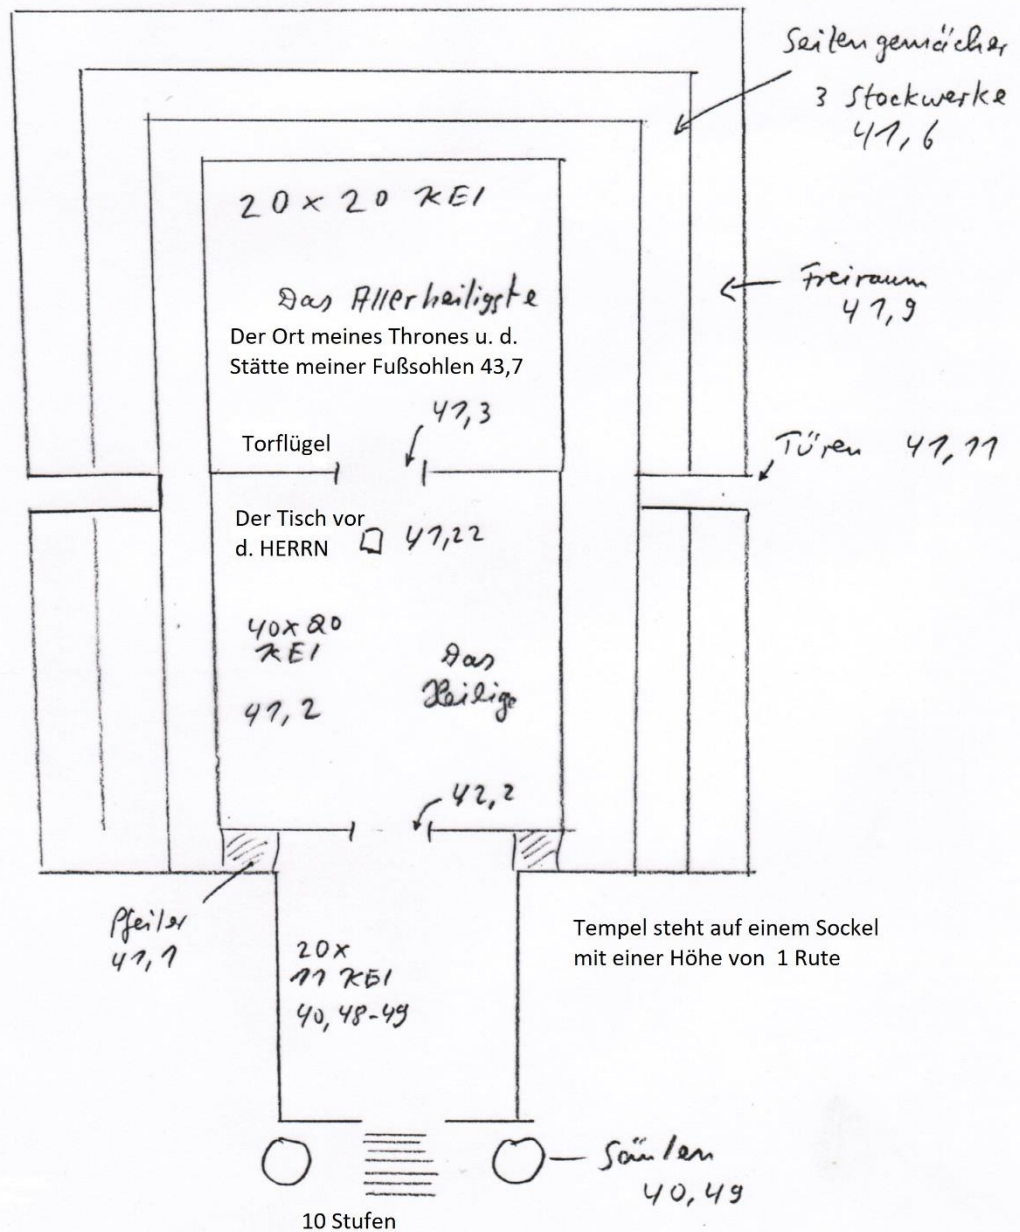 Seitengemächer
3 Stockwerke
41,6
20 x 20 KEI
Das Allerheiligste
Der Ort meines Thrones u. d.
Stätte meiner Fußsohlen 43,7
Freiraum
41,9
41,3
Torflügel
Türen 41,11
Der Tisch vor
d. HERRN
41,22
40x20
KEI
41,2
Das
Heilige
42,2
Pfeiler
41,1
20x
11 KEI
40,48-49
Tempel steht auf einem Sockel
mit einer Höhe von 1 Rute
Säulen
40,49
10 Stufen